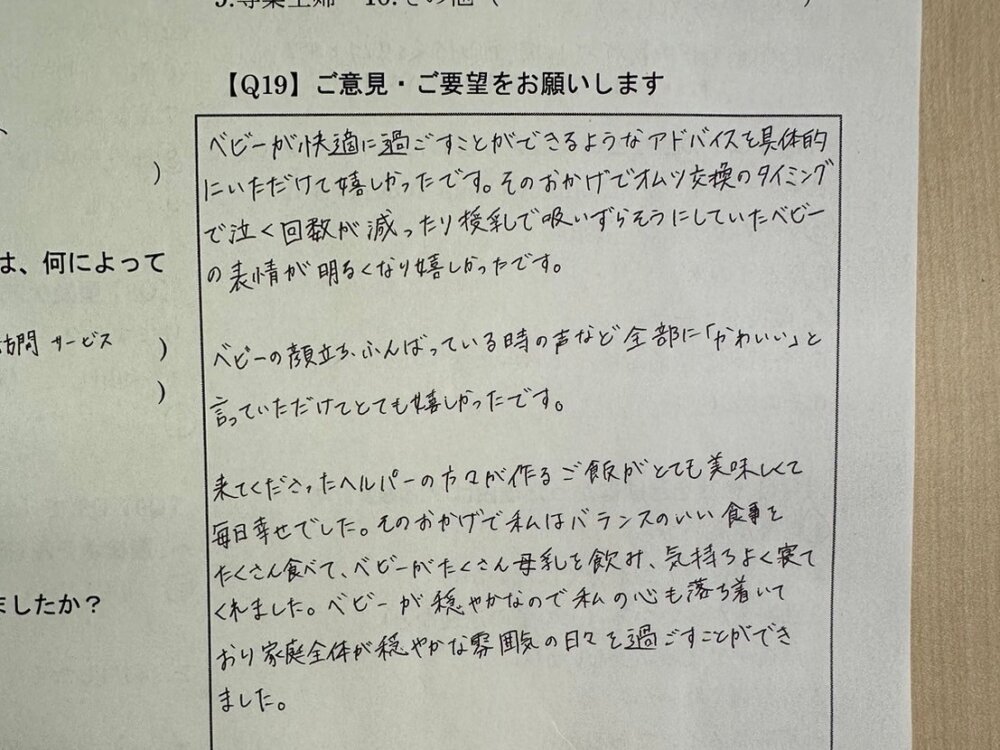 9.専業主婦 10.その他 ( )
【Q19】ご意見・ご要望をお願いします
ベビーが快適に過ごすことができるようなアドバイスを具体的
にいただけて嬉しかったです。そのおかげでオムツ交換のタイミング
で泣く回数が減ったり授乳で吸いずらそうにしていたベビー
の表情が明るくなり嬉しかったです。
ベビーの顔立ち、ふんばっている時の声など全部に「かわいい」と
言っていただけてとても嬉しかったです。
来てくださったヘルパーの方々が作るご飯がとても美味しくて
毎日幸せでした。そのおかげで私はバランスのいい食事を
たくさん食べて、ベビーがたくさん母乳を飲み、気持ちよく寝て
くれました。ベビーが穏やかなので私の心も落ち着いて
おり家庭全体が穏やかな雰囲気の日々を過ごすことができ
ました。
、
)
は、何によって
訪問サービス )
)
ましたか？